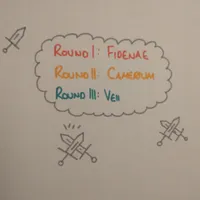 ROUND I: FIDENAE
ROUND II: CAMERIUM
ROUND III: VEII